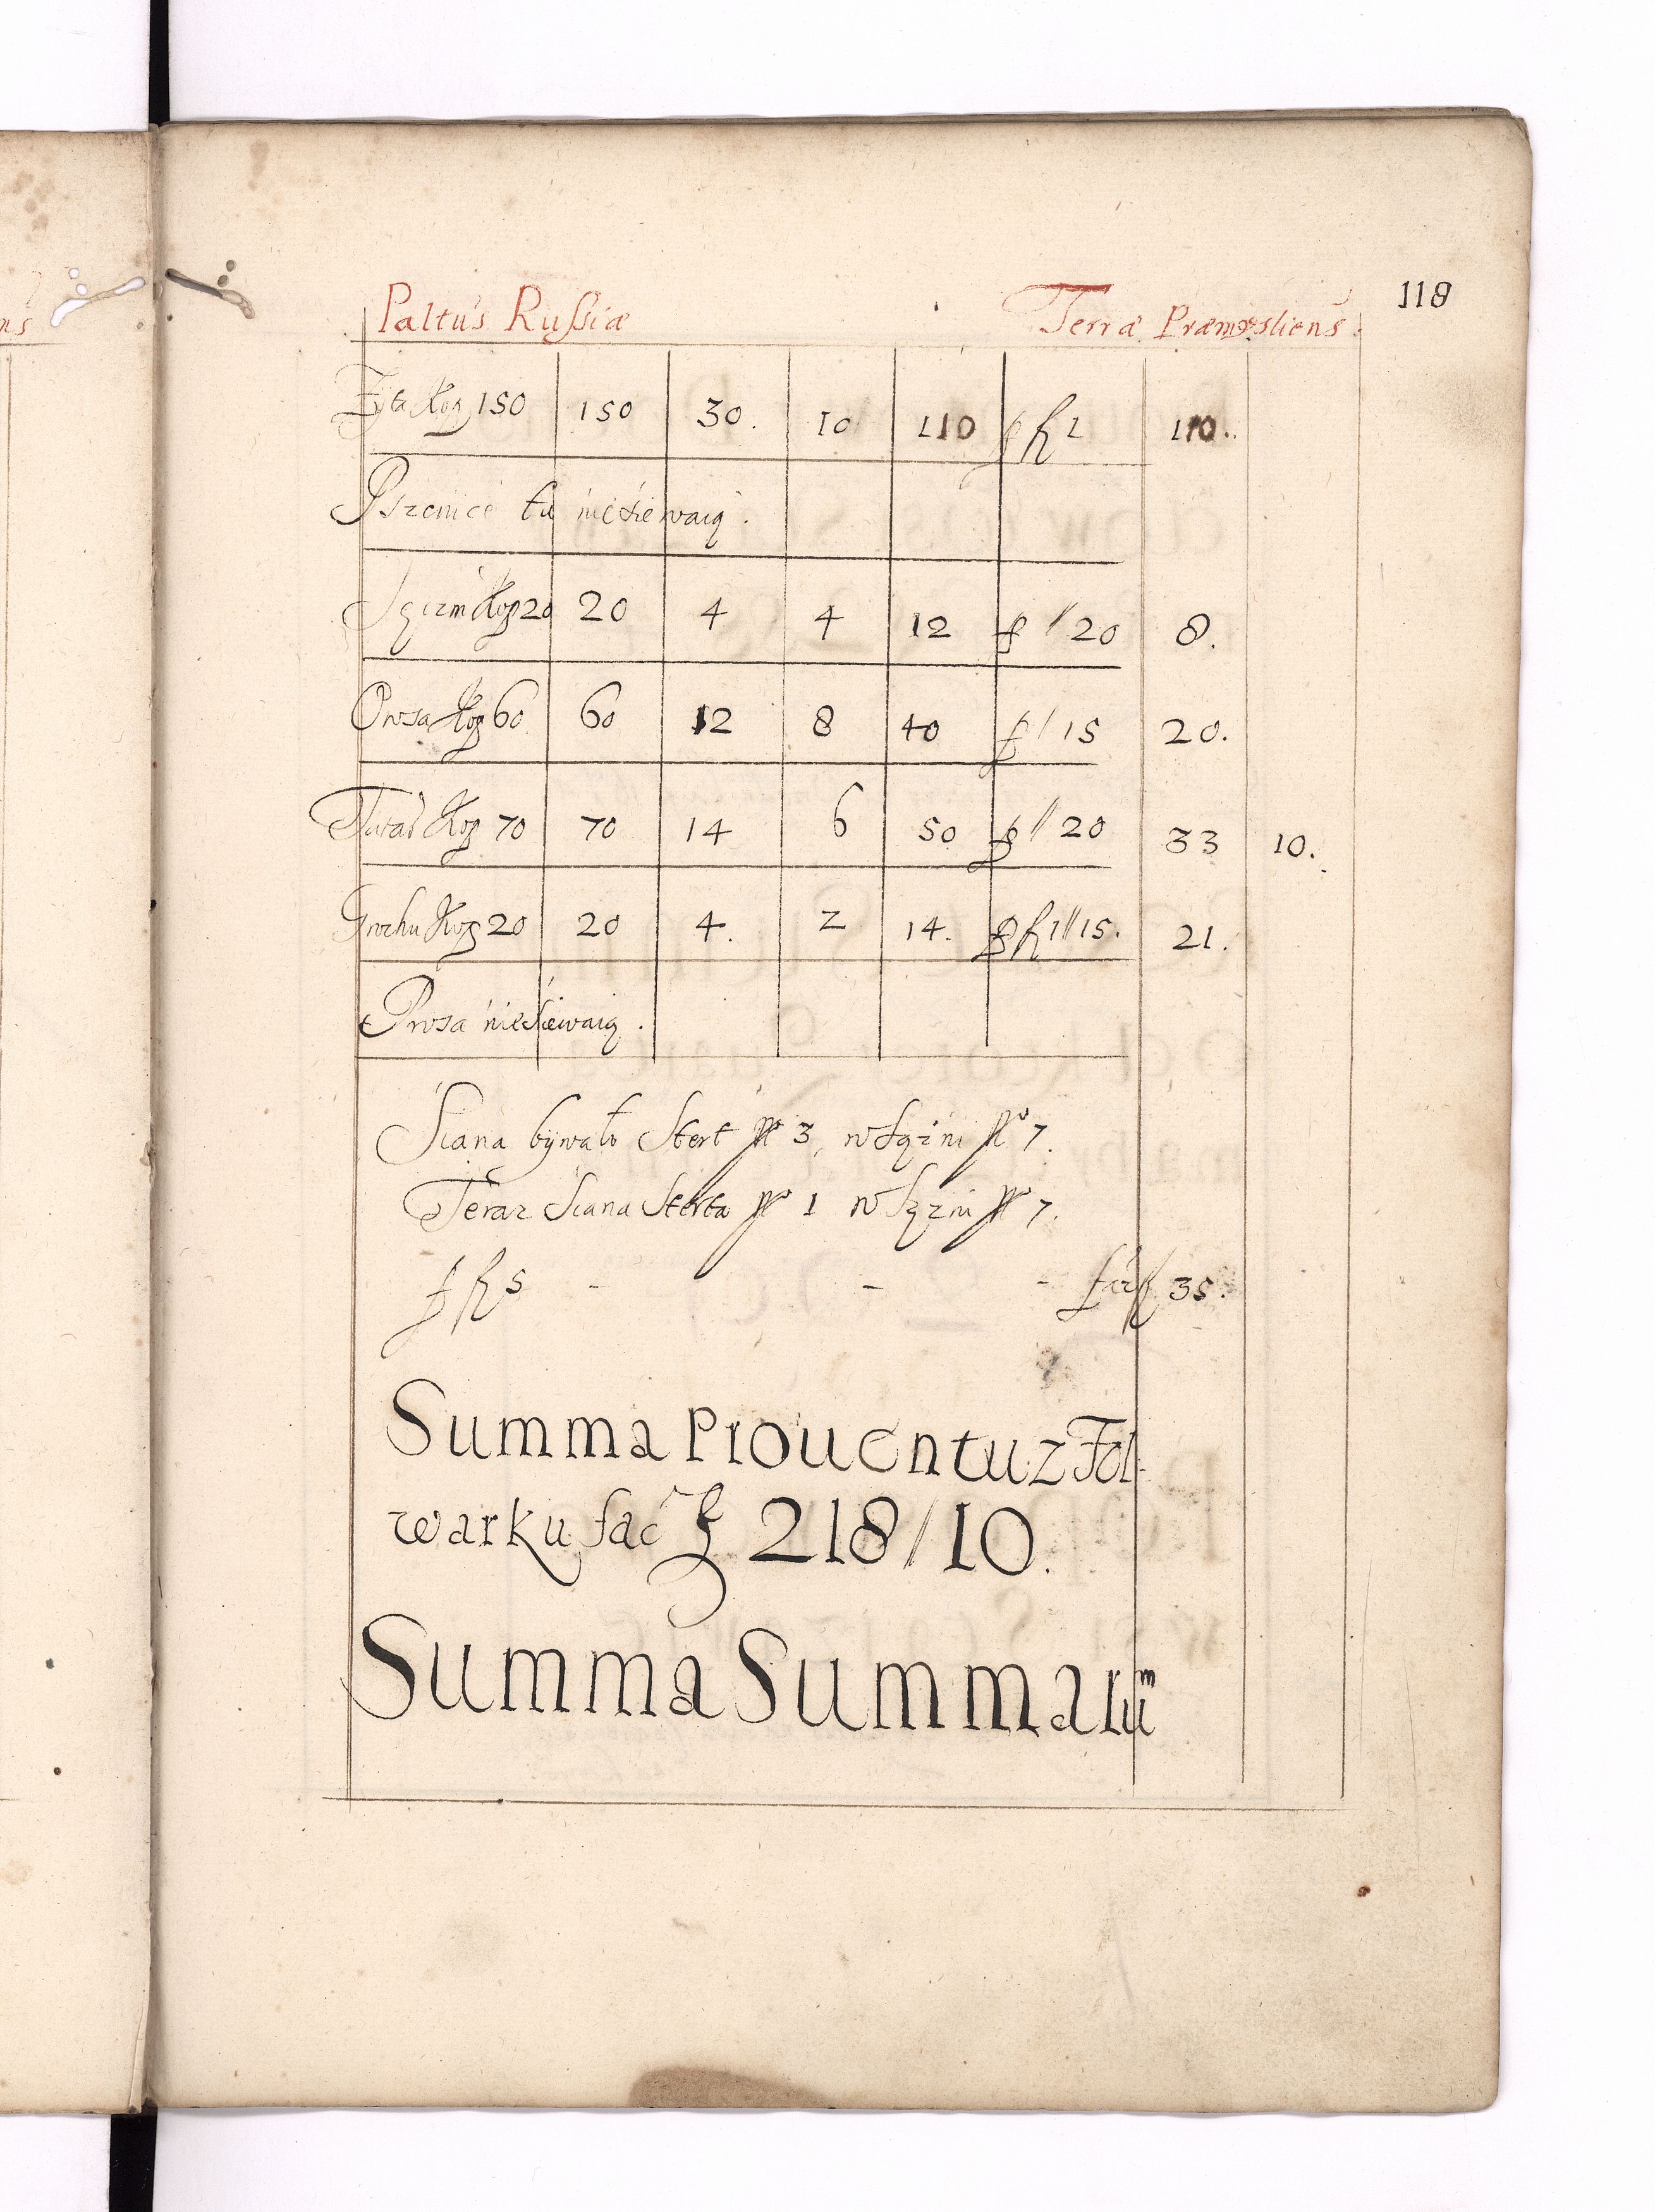 118
Paltus Russiæ Terræ Præmysliens.
Zyta Kop 150 150 30. 10 110 fl 1 110.
Pszenice tu niesiewaią.
Jęczm Kop 20 20 4 4 12 20 8.
Owsa Kop 60 60 12 8 40 15 20.
Tatar Kop 70 70 14 6 50 20 33 10.
Grochu Kop 20 20 4. 2 14. fl 1 15. 21.
Prosa niesiewaią.
Siana bywało Stert No 3, w Sążni No 7.
Teraz Siana Sterta No 1 w Sążni No 7.
fl 5 - - - facit 35.
Summa Prouentu z Fol-
warku fac fl 218/10.
Summa Summarum